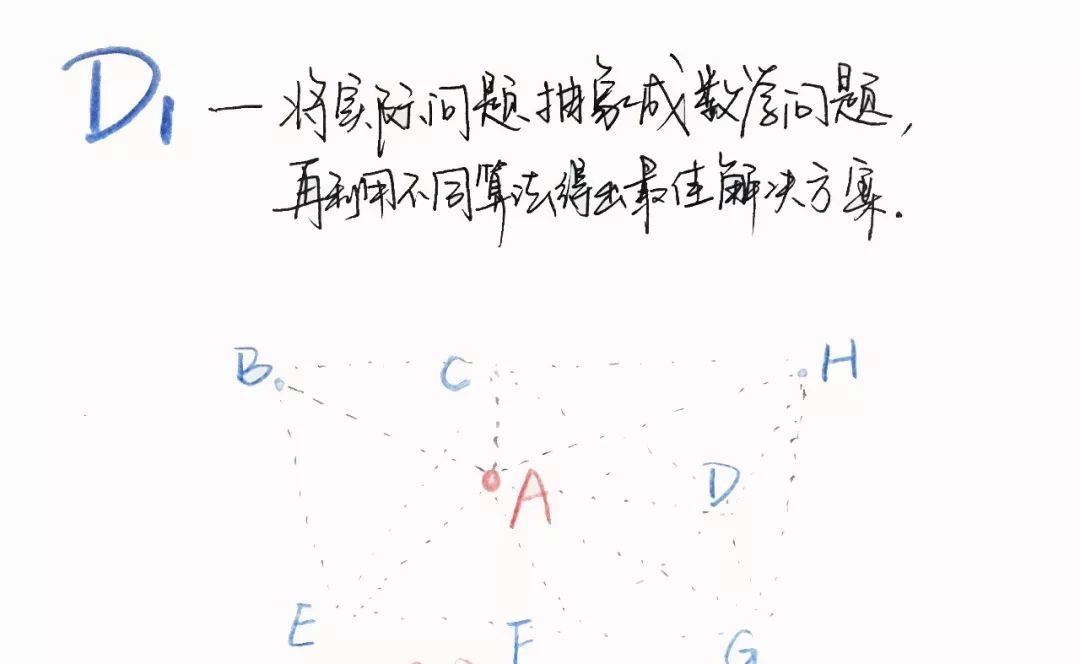 D1 — 将实际问题抽象成数学问题,
再利用不同算法得出最佳解决方案.
B C H
A D
E F G